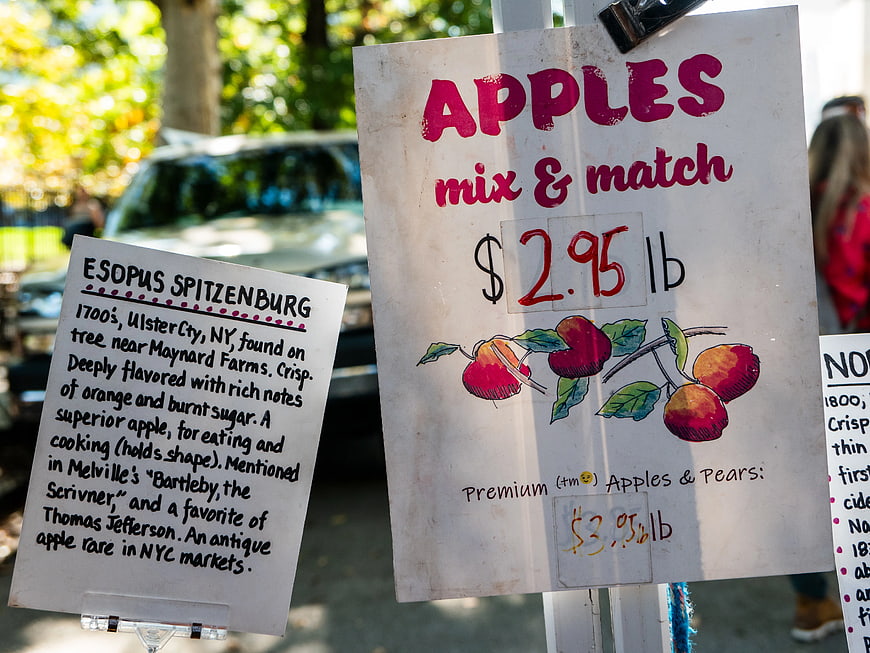 ESOPUS SPITZENBURG
1700s, Ulster Cty, NY, found on
tree near Maynard Farms. Crisp.
Deeply flavored with rich notes
of orange and burnt sugar. A
superior apple, for eating and
cooking (holds shape). Mentioned
in Melville's "Bartleby, the
Scrivner," and a favorite of
Thomas Jefferson. An antique
apple rare in NYC markets.
APPLES
mix & match
$2.95 lb
Premium (tm😉) Apples & Pears:
$3.95 lb
1800,
Crisp
thin
first
cide